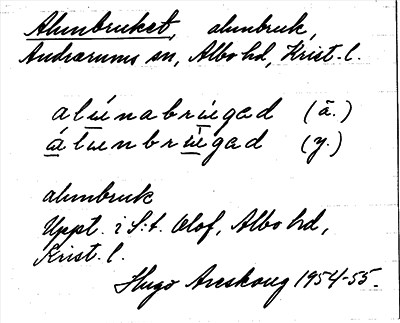 Alunbruket, alunbruk,
Andrarums sn, Albo hd, Krist. l.
alúnabrúgad (ä.)
álunbrúgad (y.)
alunbruk
Uppt. i S:t Olof, Albo hd,
Krist. l.
Hugo Areskoug 1954-55.